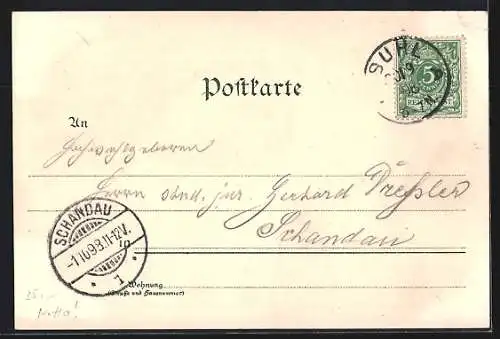 SUHL
5
Postkarte
An
Hochwohlgeboren
Herrn stud. jur. Gerhard Dreßler
Schandau
SCHANDAU
-1.10.98.11-12V.
1
Wohnung
(Straße und Hausnummer)